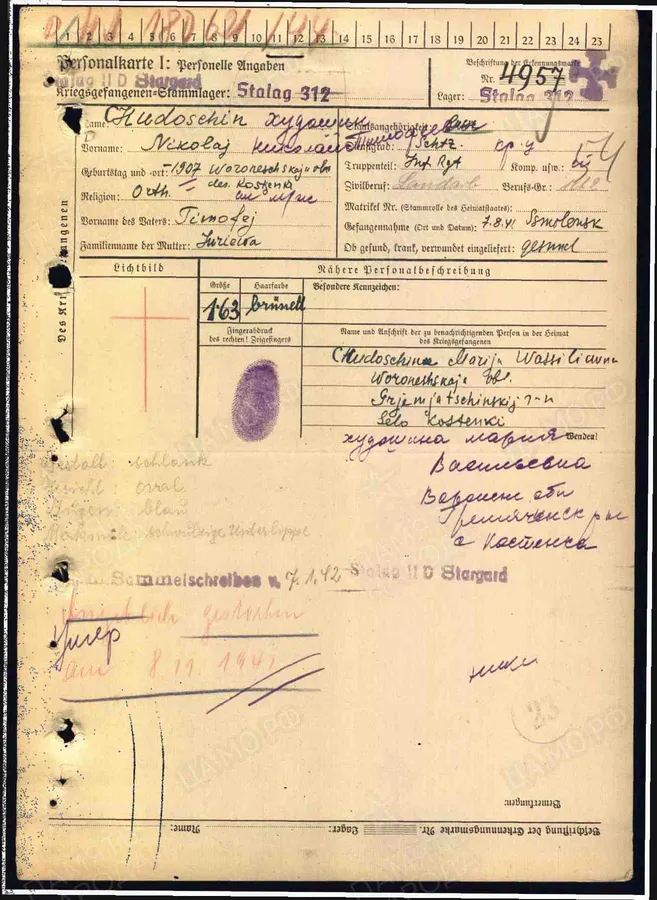 1 2 3 4 5 6 7 8 9 10 11 12 13 14 15 16 17 18 19 20 21 22 23 24 25
Personalkarte I: Personelle Angaben
Beschriftung der Erkennungsmarke
Stalag II D Stargard
Nr. 4957
Kriegsgefangenen-Stammlager: Stalag 312
Lager: Stalag 312
Des Kriegsgefangenen
Name: Chudoschin Худошин
Staatsangehörigkeit:
Vorname: Nikolaj Николай Тимофеевич
Dienstgrad: Schtz. кр-ц
Geburtstag und -ort: -1907 Woroneschskaja obl
des. Kostenki
Truppenteil: Inf. Rgt Komp. usw.:
Religion: Orth.
Zivilberuf: Landarb Berufs-Gr.:
Vorname des Vaters: Timofej
Matrikel Nr. (Stammrolle des Heimatstaates):
Gefangennahme (Ort und Datum): 7.8.41 Smolensk
Familienname der Mutter: Juriewa
Ob gesund, krank, verwundet eingeliefert: gesund
54
Lichtbild
Nähere Personalbeschreibung
Größe
Haarfarbe
Besondere Kennzeichen:
1.63
brünett
Fingerabdruck
des rechten! Zeigefingers
Name und Anschrift der zu benachrichtigenden Person in der Heimat
des Kriegsgefangenen
Chudoschina Marija Wassiliewna
Woroneshskaja obl.
Grjemjatschinskij r-n
Selo Kostenki
Худошина Мария
Wenden!
Васильевна
Воронеж обл
Гремяченск р-н
с Костенка
Gestalt: schlank
Gesicht: oval
Augen: blau
Merkmale: schwulzige Unterlippe
Sammelschreiben v. 7.1.42 Stalag II D Stargard
Angeblich gestorben
Умер
am 8 11 1941
23
Bemerkungen:
Beschriftung der Erkennungsmarke Nr. Lager: Name:
ЦАМО РФ